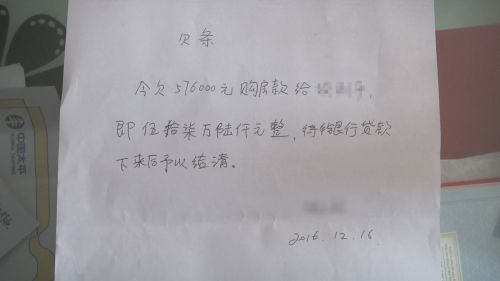 欠条
今欠576000元购房款给
即伍拾柒万陆仟元整，待银行贷款
下来后予以结清。
2016.12.16
中国太平
CHINA TAIPING